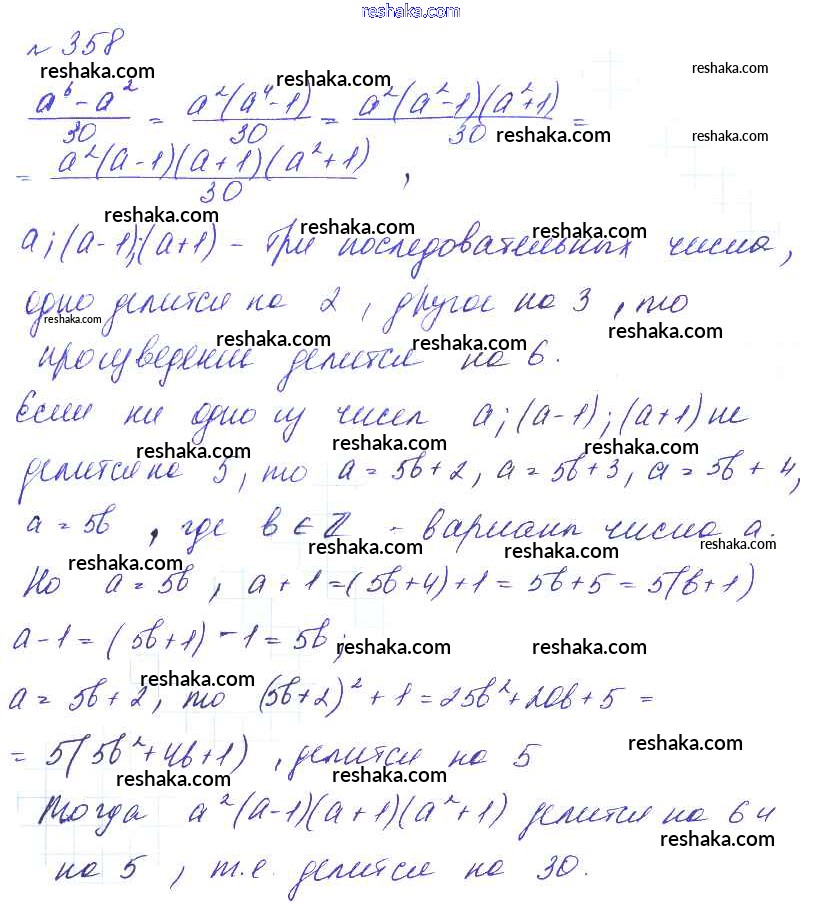 reshaka.com
№ 358
reshaka.com reshaka.com reshaka.com
(a⁶ - a²)/30 = a²(a⁴-1)/30 = a²(a²-1)(a²+1)/30 =
reshaka.com reshaka.com
= a²(a-1)(a+1)(a²+1)/30 ,
reshaka.com reshaka.com reshaka.com
a; (a-1); (a+1) - три последовательных числа,
одно делится на 2, другое на 3, то
reshaka.com reshaka.com reshaka.com reshaka.com
произведение делится на 6.
Если ни одно из чисел a; (a-1); (a+1) не
reshaka.com reshaka.com reshaka.com
делится на 5, то a = 5b+2, a = 5b+3, a = 5b + 4,
a = 5b , где b ∈ Z - вариант числа a.
reshaka.com reshaka.com reshaka.com reshaka.com
Но a = 5b, a + 1 = (5b+4)+1 = 5b+5 = 5(b+1)
a-1 = (5b+1) -1 = 5b;
reshaka.com reshaka.com reshaka.com
a = 5b+2, то (5b+2)² + 1 = 25b²+20b+5 =
= 5(5b²+4b+1) , делится на 5
reshaka.com reshaka.com reshaka.com
Тогда a²(a-1)(a+1)(a²+1) делится на 6 и
reshaka.com
на 5, т.е. делится на 30.